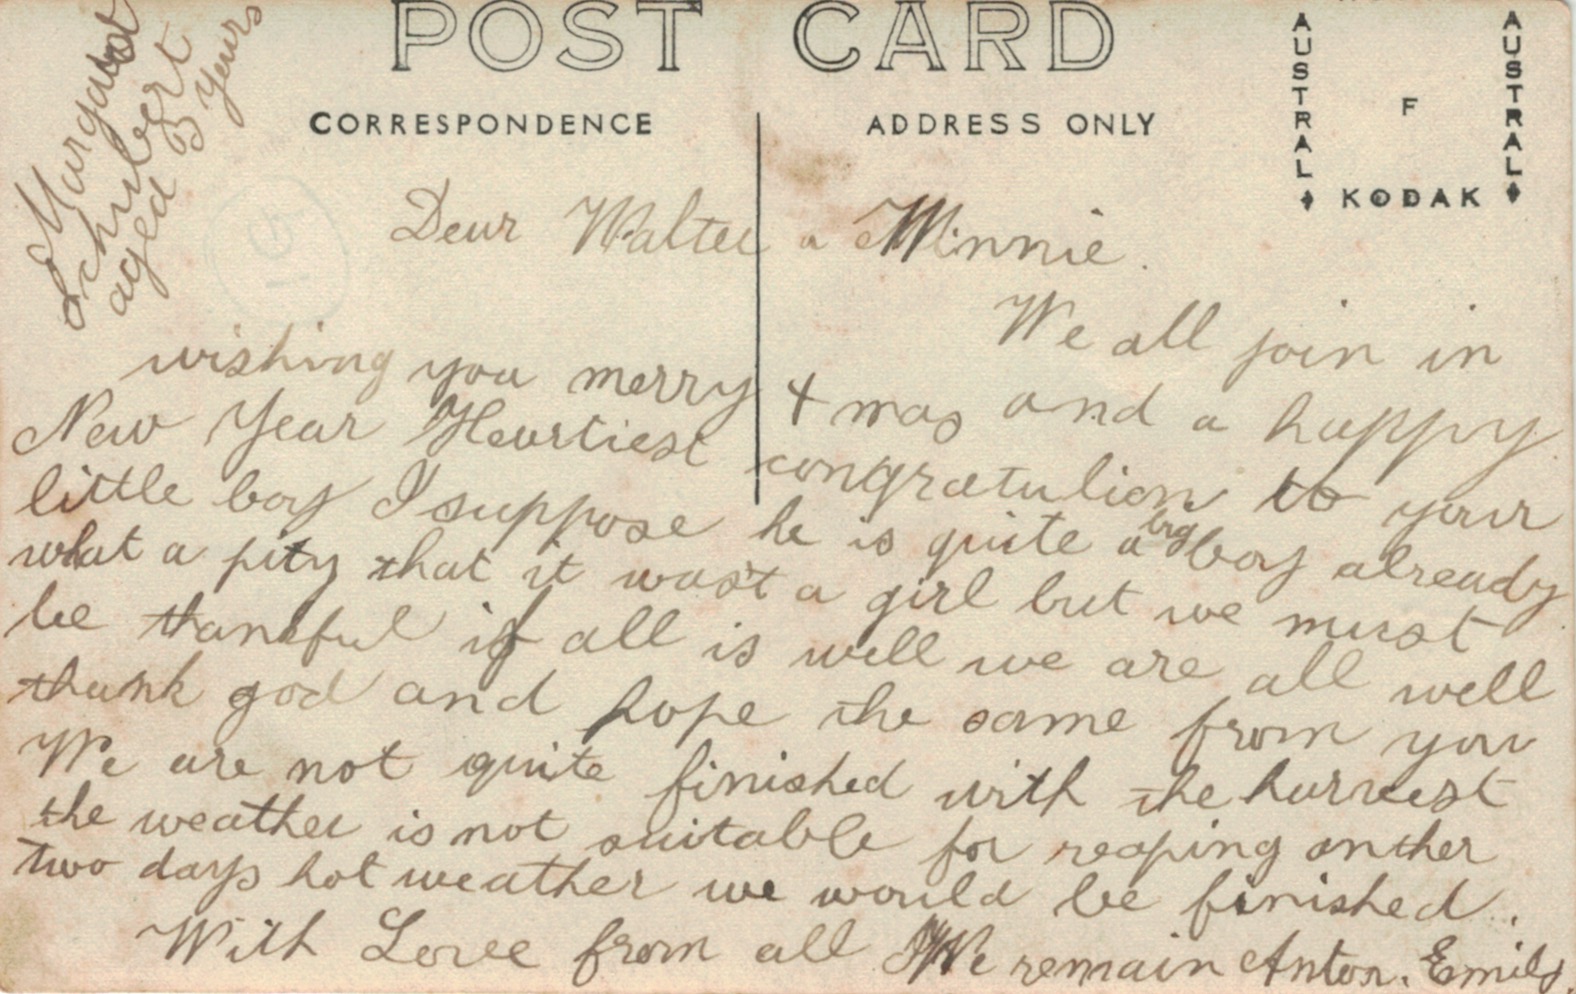 POST CARD
CORRESPONDENCE
ADDRESS ONLY
AUSTRAL
F
AUSTRAL
KODAK
Margaret
Schubert
aged 5 years
Dear Walter a Minnie.
We all join in
wishing you merry Xmas and a happy
New Year Heartiest congratulion to your
little boy I suppose he is quite a big boy already
what a pity that it wast a girl but we must
be thankful if all is well we are all well
thank god and hope the same from you
We are not quite finished with the harvest
the weather is not suitable for reaping anther
two days hot weather we would be finished.
With Love from all We remain Anton. Emily.